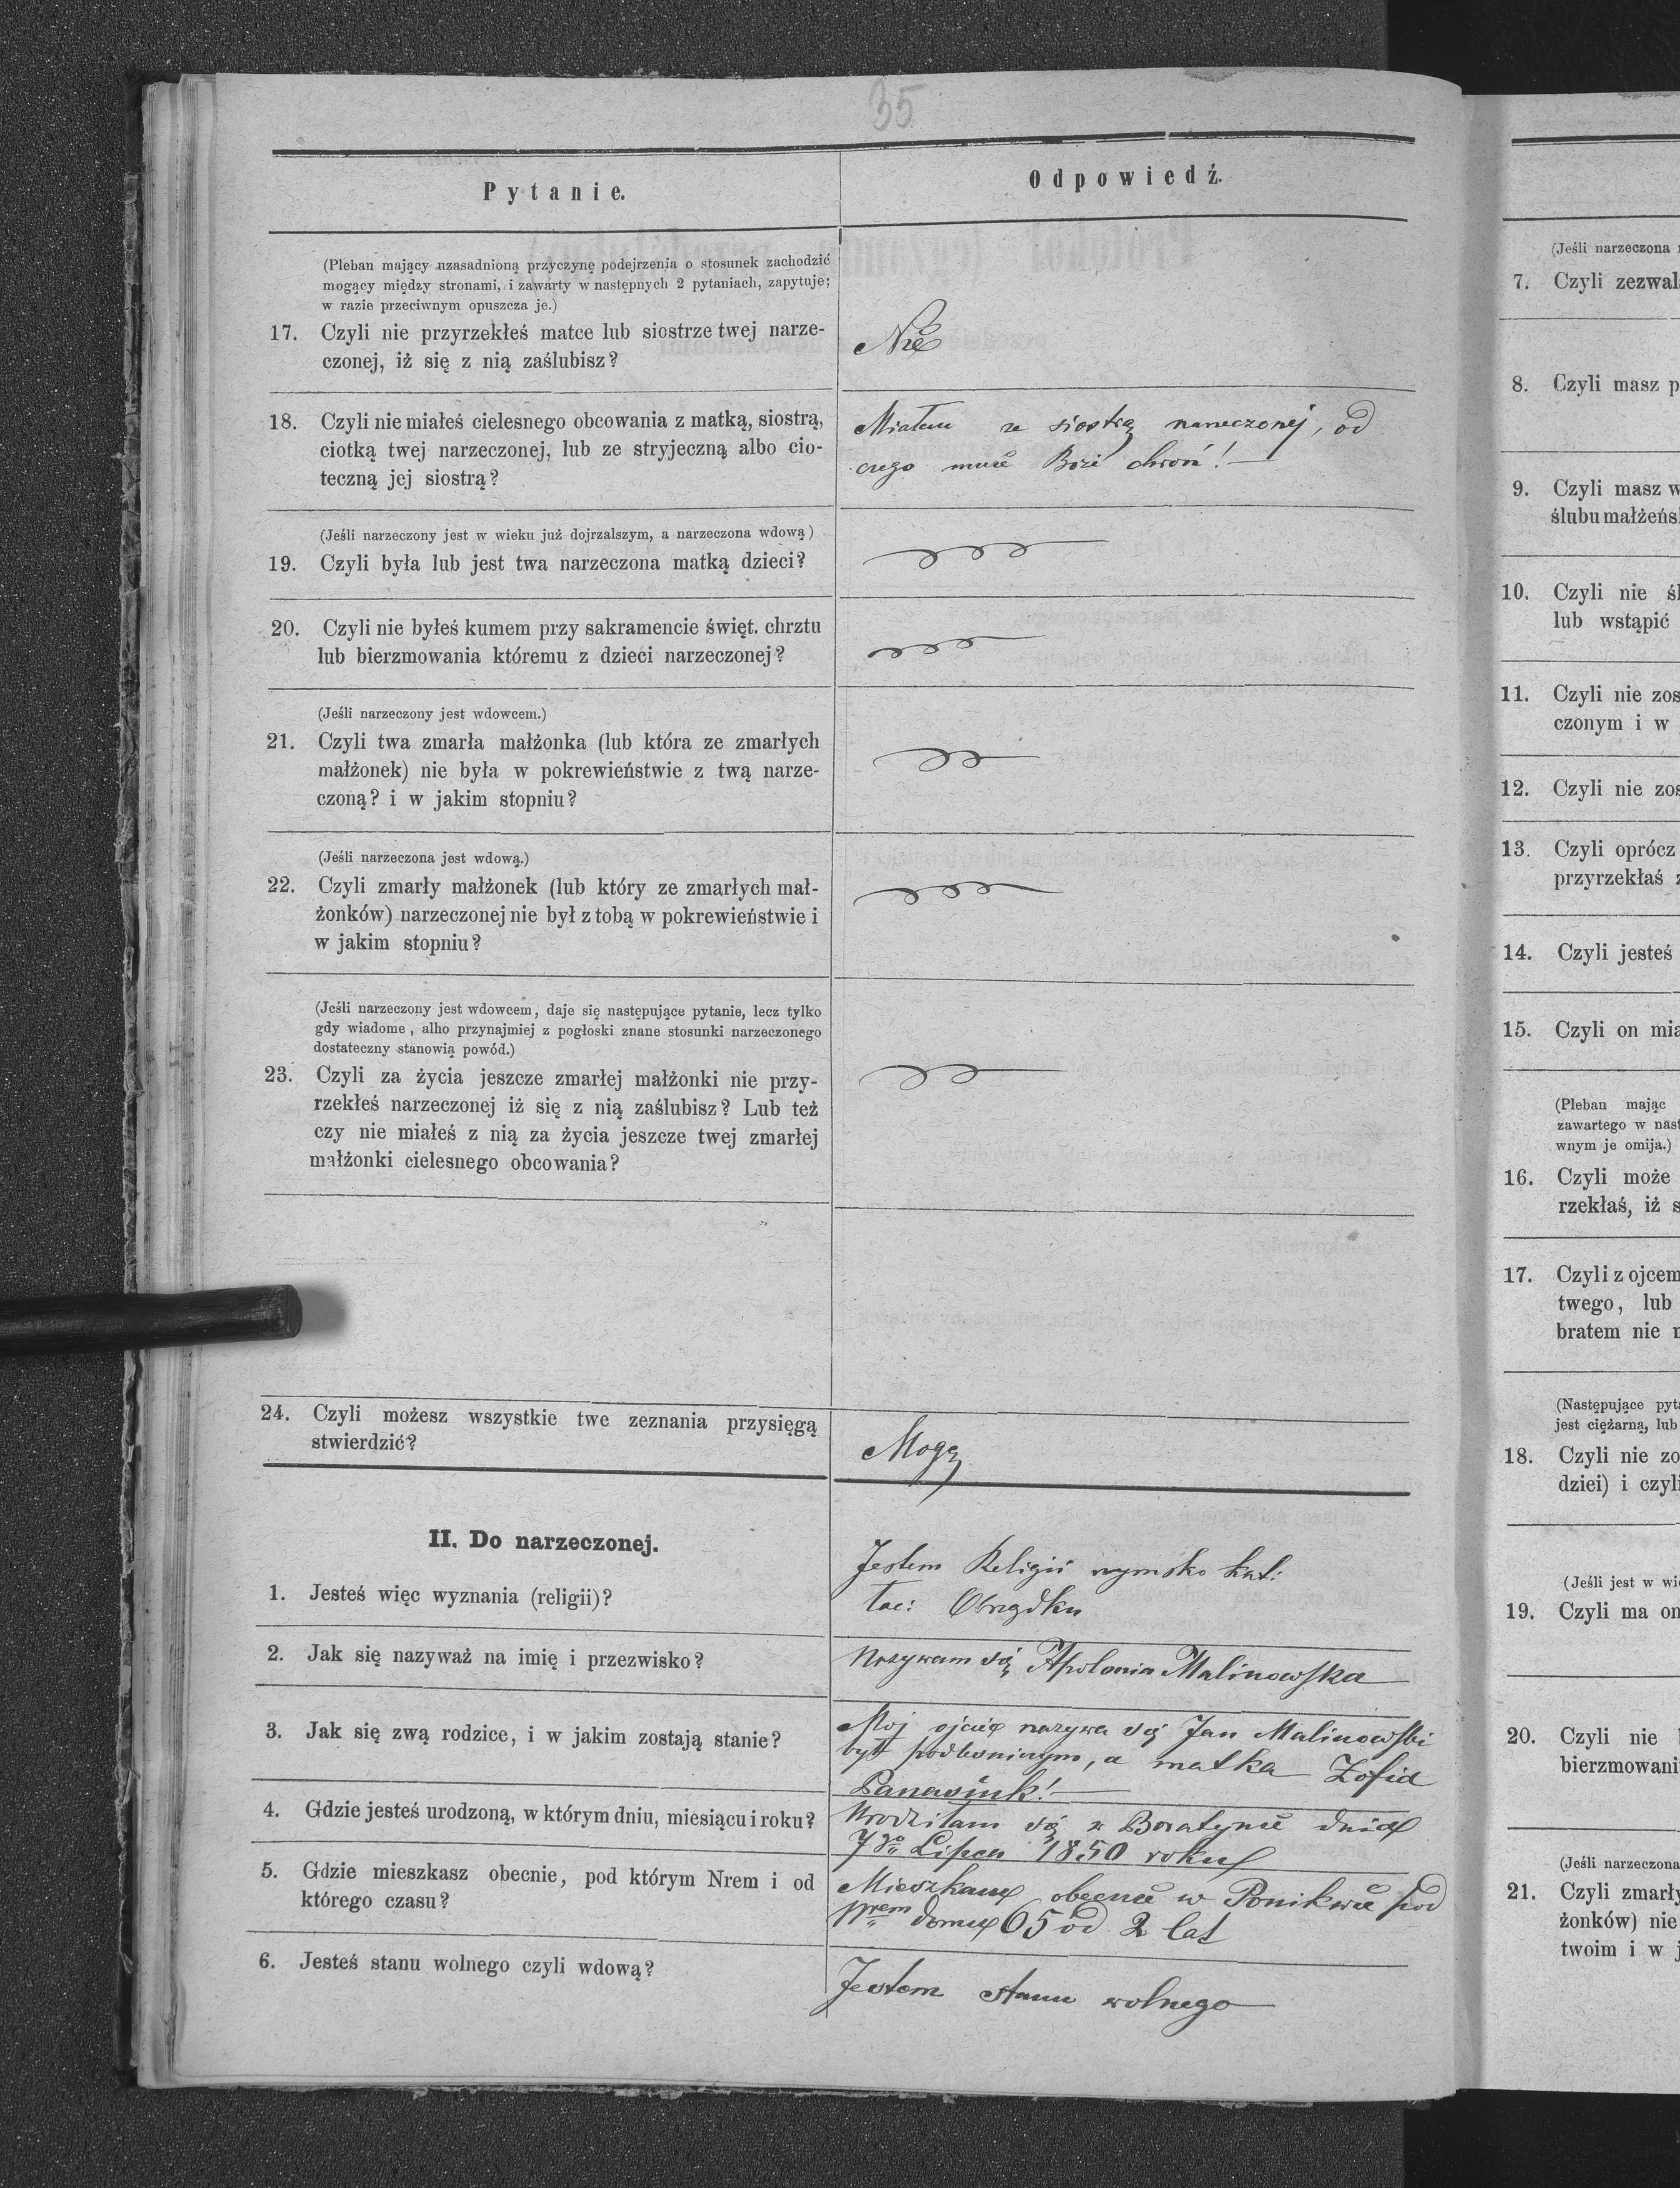 35
Pytanie.
Odpowiedź.
(Pleban mający uzasadnioną przyczynę podejrzenia o stosunek zachodzić
mogący między stronami, i zawarty w następnych 2 pytaniach, zapytuje;
w razie przeciwnym opuszcza je.)
17. Czyli nie przyrzekłeś matce lub siostrze twej narze-
czonej, iż się z nią zaślubisz?
Nie
18. Czyli nie miałeś cielesnego obcowania z matką, siostrą,
ciotką twej narzeczonej, lub ze stryjeczną albo cio-
teczną jej siostrą?
Miałem ze siostrą narzeczonej, od
czego Boże chroń!
(Jeśli narzeczony jest w wieku już dojrzalszym, a narzeczona wdową)
19. Czyli była lub jest twa narzeczona matką dzieci?
20. Czyli nie byłeś kumem przy sakramencie święt. chrztu
lub bierzmowania któremu z dzieci narzeczonej?
(Jeśli narzeczony jest wdowcem.)
21. Czyli twa zmarła małżonka (lub która ze zmarłych
małżonek) nie była w pokrewieństwie z twą narze-
czoną? i w jakim stopniu?
(Jeśli narzeczona jest wdową.)
22. Czyli zmarły małżonek (lub który ze zmarłych mał-
żonków) narzeczonej nie był z tobą w pokrewieństwie i
w jakim stopniu?
(Jeśli narzeczony jest wdowcem, daje się następujące pytanie, lecz tylko
gdy wiadome, alho przynajmiej z pogłoski znane stosunki narzeczonego
dostateczny stanowią powód.)
23. Czyli za życia jeszcze zmarłej małżonki nie przy-
rzekłeś narzeczonej iż się z nią zaślubisz? Lub też
czy nie miałeś z nią za życia jeszcze twej zmarłej
małżonki cielesnego obcowania?
24. Czyli możesz wszystkie twe zeznania przysięgą
stwierdzić?
Mogę
II. Do narzeczonej.
1. Jesteś więc wyznania (religii)?
Jestem Religii rzymsko kat:
łac: Obrządku
2. Jak się nazyważ na imię i przezwisko?
Nazywam się Apolonia Malinowska
3. Jak się zwą rodzice, i w jakim zostają stanie?
Moj ojciec nazywa się Jan Malinowski
był podleśniczym, a matka Zofia
Panasiuk!
4. Gdzie jesteś urodzoną, w którym dniu, miesiącu i roku?
Urodziłam się w Boratynie dnia
7go Lipca 1850 roku
5. Gdzie mieszkasz obecnie, pod którym Nrem i od
którego czasu?
Mieszkam obecnie w Ponikwie pod
Nrem domu 65 od 2 lat
6. Jesteś stanu wolnego czyli wdową?
Jestem stanu wolnego
(Jeśli narzeczona
7. Czyli zezwal
8. Czyli masz p
9. Czyli masz w
ślubu małżeńs
10. Czyli nie śl
lub wstąpić
11. Czyli nie zos
czonym i w
12. Czyli nie zos
13. Czyli oprócz
przyrzekłaś z
14. Czyli jesteś
15. Czyli on mia
(Pleban mając
zawartego w nast
wnym je omija.)
16. Czyli może
rzekłaś, iż s
17. Czyli z ojcem
twego, lub
bratem nie
(Następujące pyta
jest ciężarną, lub
18. Czyli nie zo
dziei) i czyli
(Jeśli jest w wi
19. Czyli ma on
20. Czyli nie
bierzmowani
(Jeśli narzeczona
21. Czyli zmarły
żonków) nie
twoim i w j